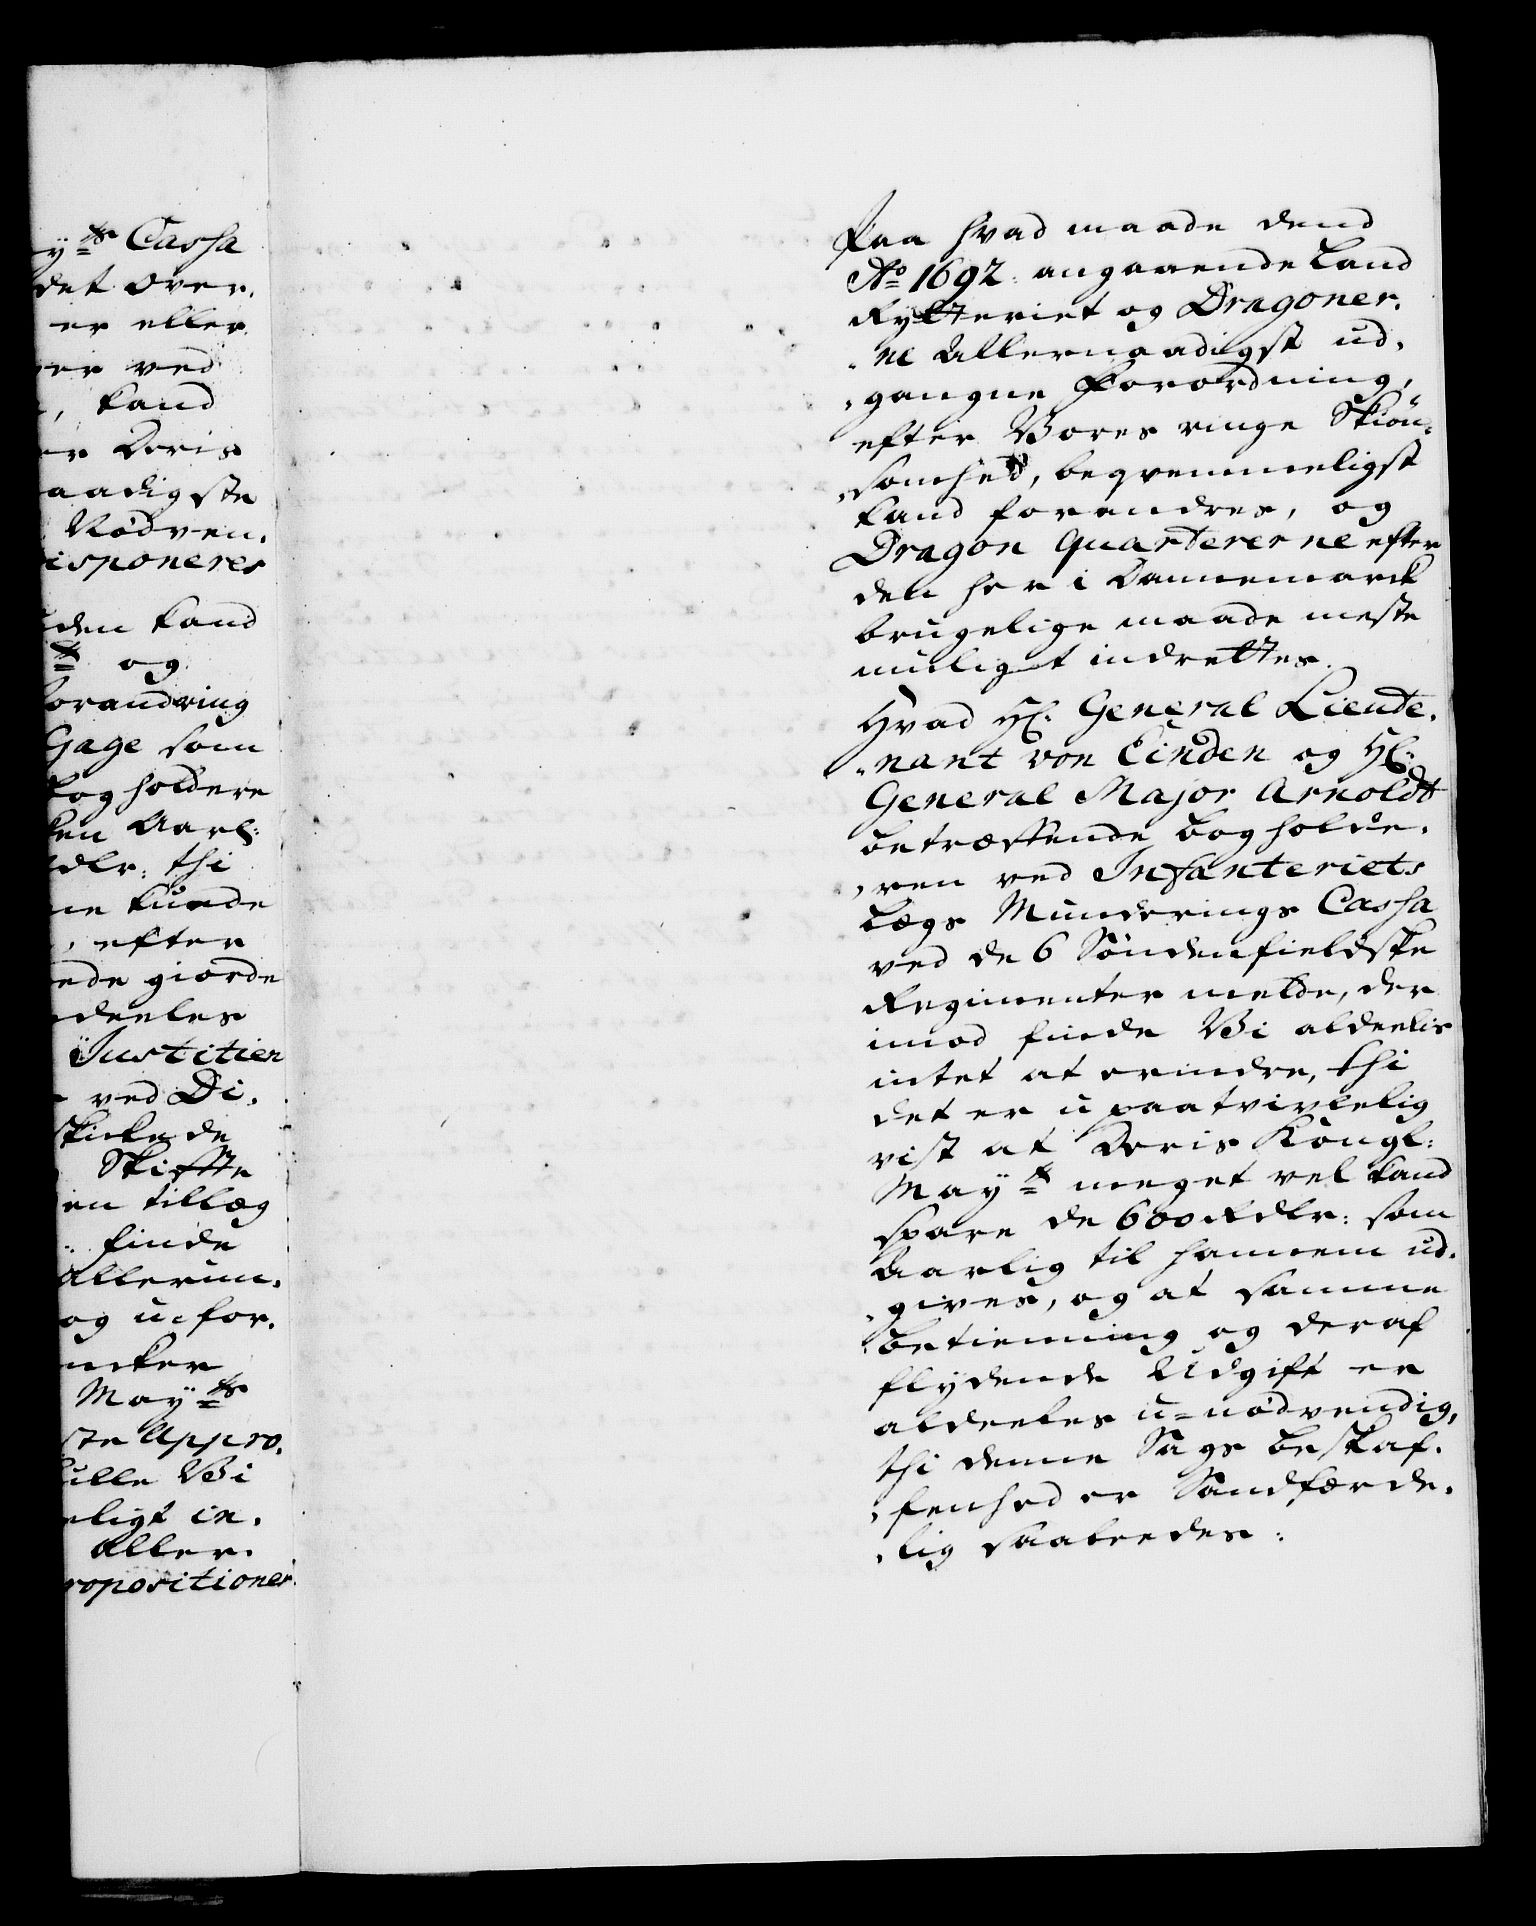 yts Cassa
det over,
er eller
er ved
, kand
er Deris
aadigste
Nødven,
isponeres
den kand
og
forandring
Gage som
og holdere
ken Aarl:
dlr: thi
ne kunde
, efter
ede giorde
deeles
Justitien
ved Di,
skickede
Skiffte
en tillæg
finde
Allerun,
og ufor,
ncker
Mayts
ste Appro,
ulle Vi
eligt in,
Aller,
ropositioner
Paa hvad maade dend
Ao 1692 angaaende Land
Rytteriet og Dragoner,
ne Allernaadigst ud,
gangne Forordning,
efter Vores ringe Skiøn,
somhed, beqvemmeligst
kand forandres, og
Dragon Quartererne efter
den her i Dannemarck
brugelige maade meste
mueligst indrettes.
Hvad Hr. General Lieute,
nant von Linden og Hr.
General Major Arnoldt
betræffende bogholde,
ren ved Infanteriets
Lægs Munderings Cassa
ved de 6 Søndenfieldske
Regimenter melde, der
imod finde Vi aldeelis
intet at erindre, thi
det er upaatvivlelig
vist at Deris Kongl:
Mayt meget vel kand
spare de 600 Rdlr: som
Aarlig til hannem ud,
gives, og at samme
betienning og deraf
flydende Udgift er
aldeeles u=nødvendig,
thi denne Sags beskaf,
fenhed er Sandfærde,
lig saaledes: